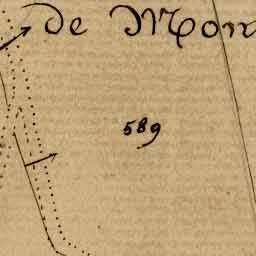 de Mon
589